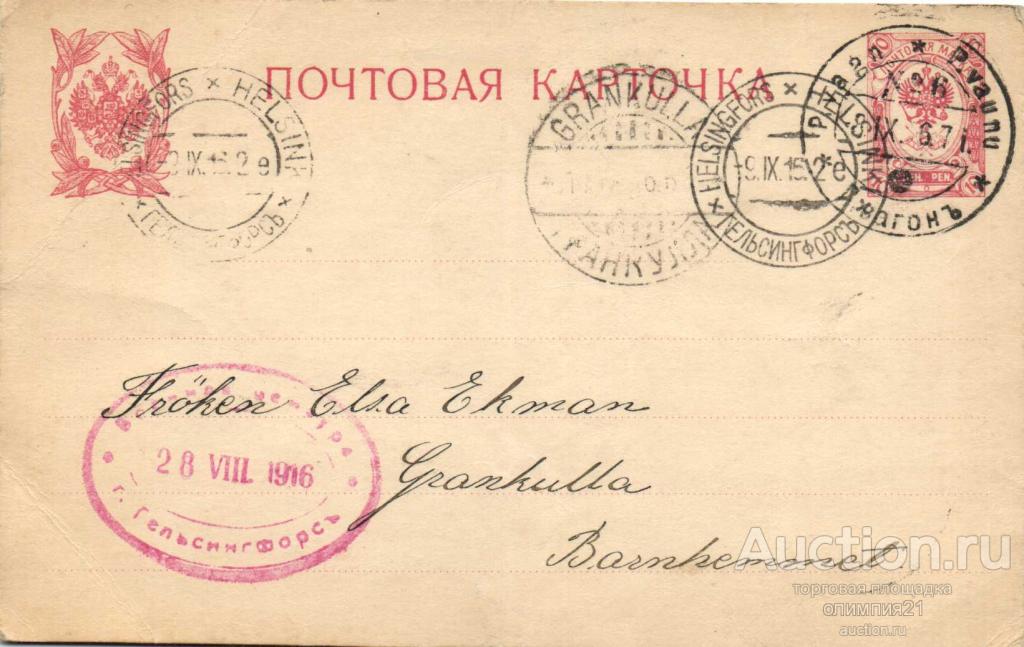 ПОЧТОВАЯ КАРТОЧКА
HELSINGFORS × HELSINKI ×
9.IX.15.2e
ГЕЛЬСИНГФОРСЪ ×
GRANKULLA
ГРАНКУЛЛА
HELSINGFORS × HELSINKI ×
-9.IX.15.2e
ГЕЛЬСИНГФОРСЪ
Pvaunu
IX.
вагонъ
PEN.
Fröken Elsa Ekman
Grankulla
Barnhemmet
28 VIII. 1916
г. Гельсингфорсъ
Auction.ru
торговая площадка
олимпия21
auction.ru